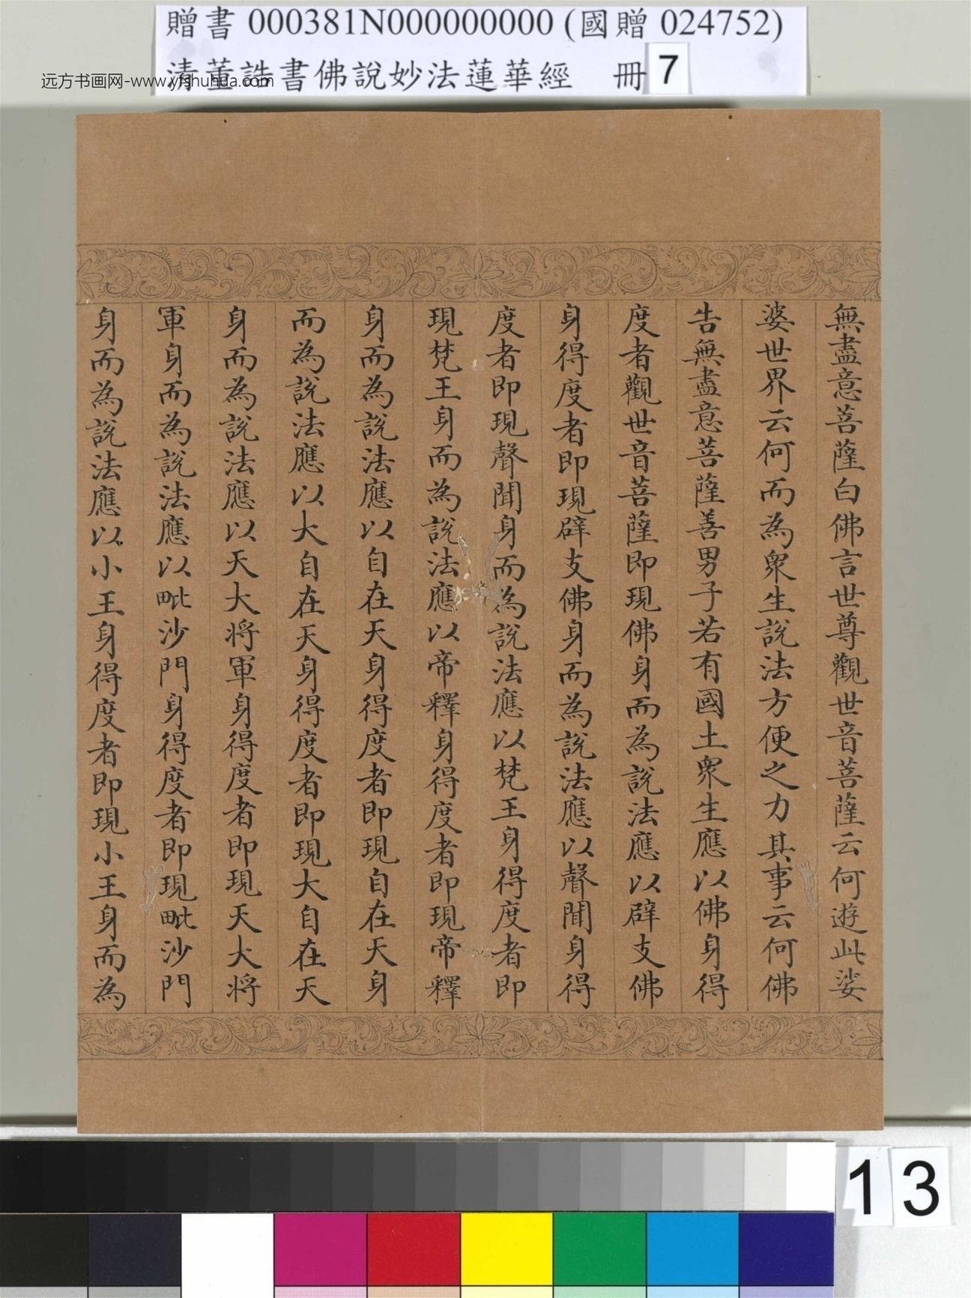 贈書 000381N000000000 (國贈 024752)
清董誥書佛說妙法蓮華經 冊 7
远方书画网-www.yfshuhua.com
無盡意菩薩白佛言世尊觀世音菩薩云何遊此娑
婆世界云何而為衆生說法方便之力其事云何佛
告無盡意菩薩善男子若有國土衆生應以佛身得
度者觀世音菩薩即現佛身而為說法應以辟支佛
身得度者即現辟支佛身而為說法應以聲聞身得
度者即現聲聞身而為說法應以梵王身得度者即
現梵王身而為說法應以帝釋身得度者即現帝釋
身而為說法應以自在天身得度者即現自在天身
而為說法應以大自在天身得度者即現大自在天
身而為說法應以天大将軍身得度者即現天大将
軍身而為說法應以毗沙門身得度者即現毗沙門
身而為說法應以小王身得度者即現小王身而為
13